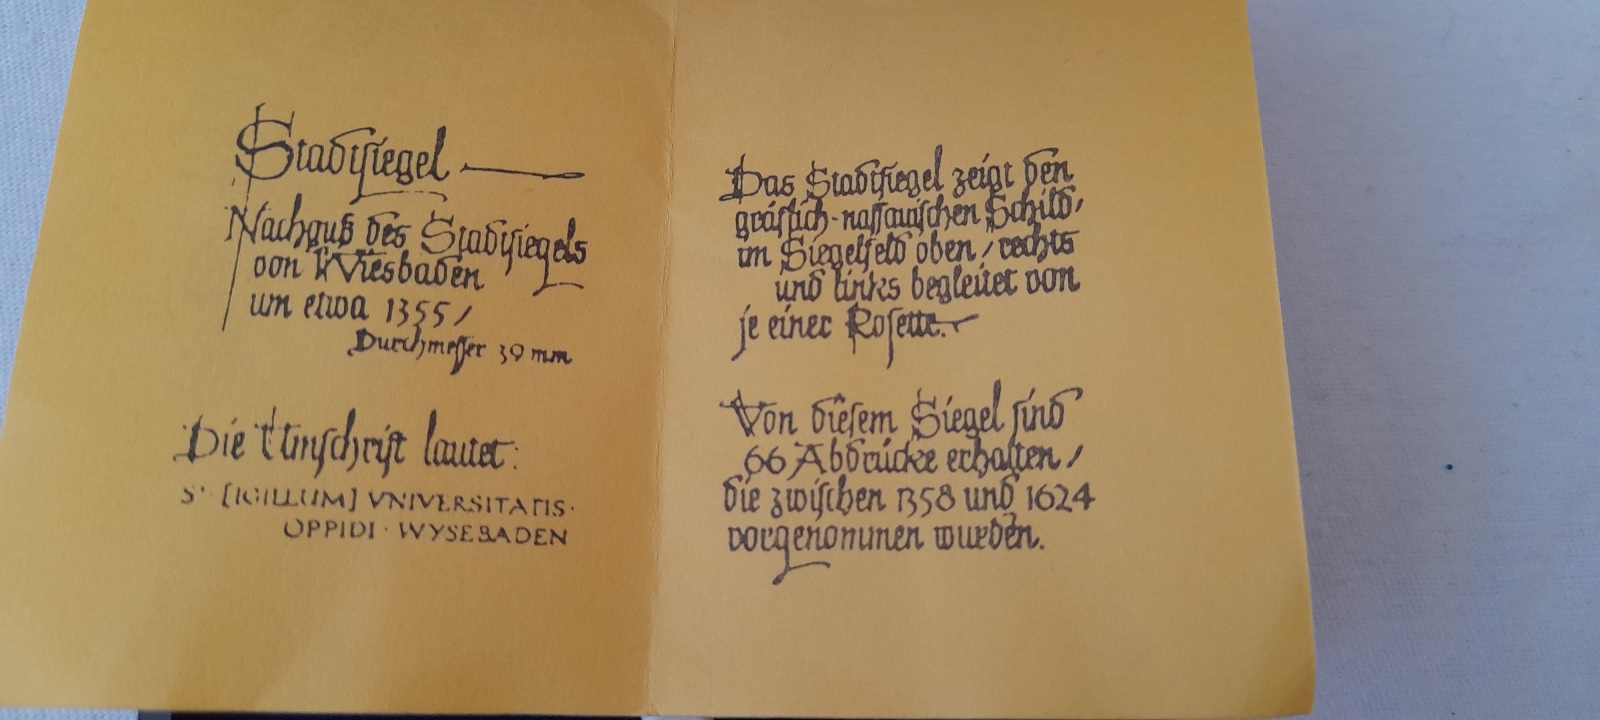 Stadtsiegel
Nachguß des Stadtsiegels
von Wiesbaden
um etwa 1355/
Durchmesser 39 mm
Die Umschrift lautet:
S· [IGILLUM] VNIVERSITATIS·
OPPIDI · WYSEBADEN
Das Stadtsiegel zeigt den
gräflich-nassauischen Schild,
im Siegelfeld oben / rechts
und links begleitet von
je einer Rosette.
Von diesem Siegel sind
66 Abdrücke erhalten /
die zwischen 1358 und 1624
vorgenommen wurden.